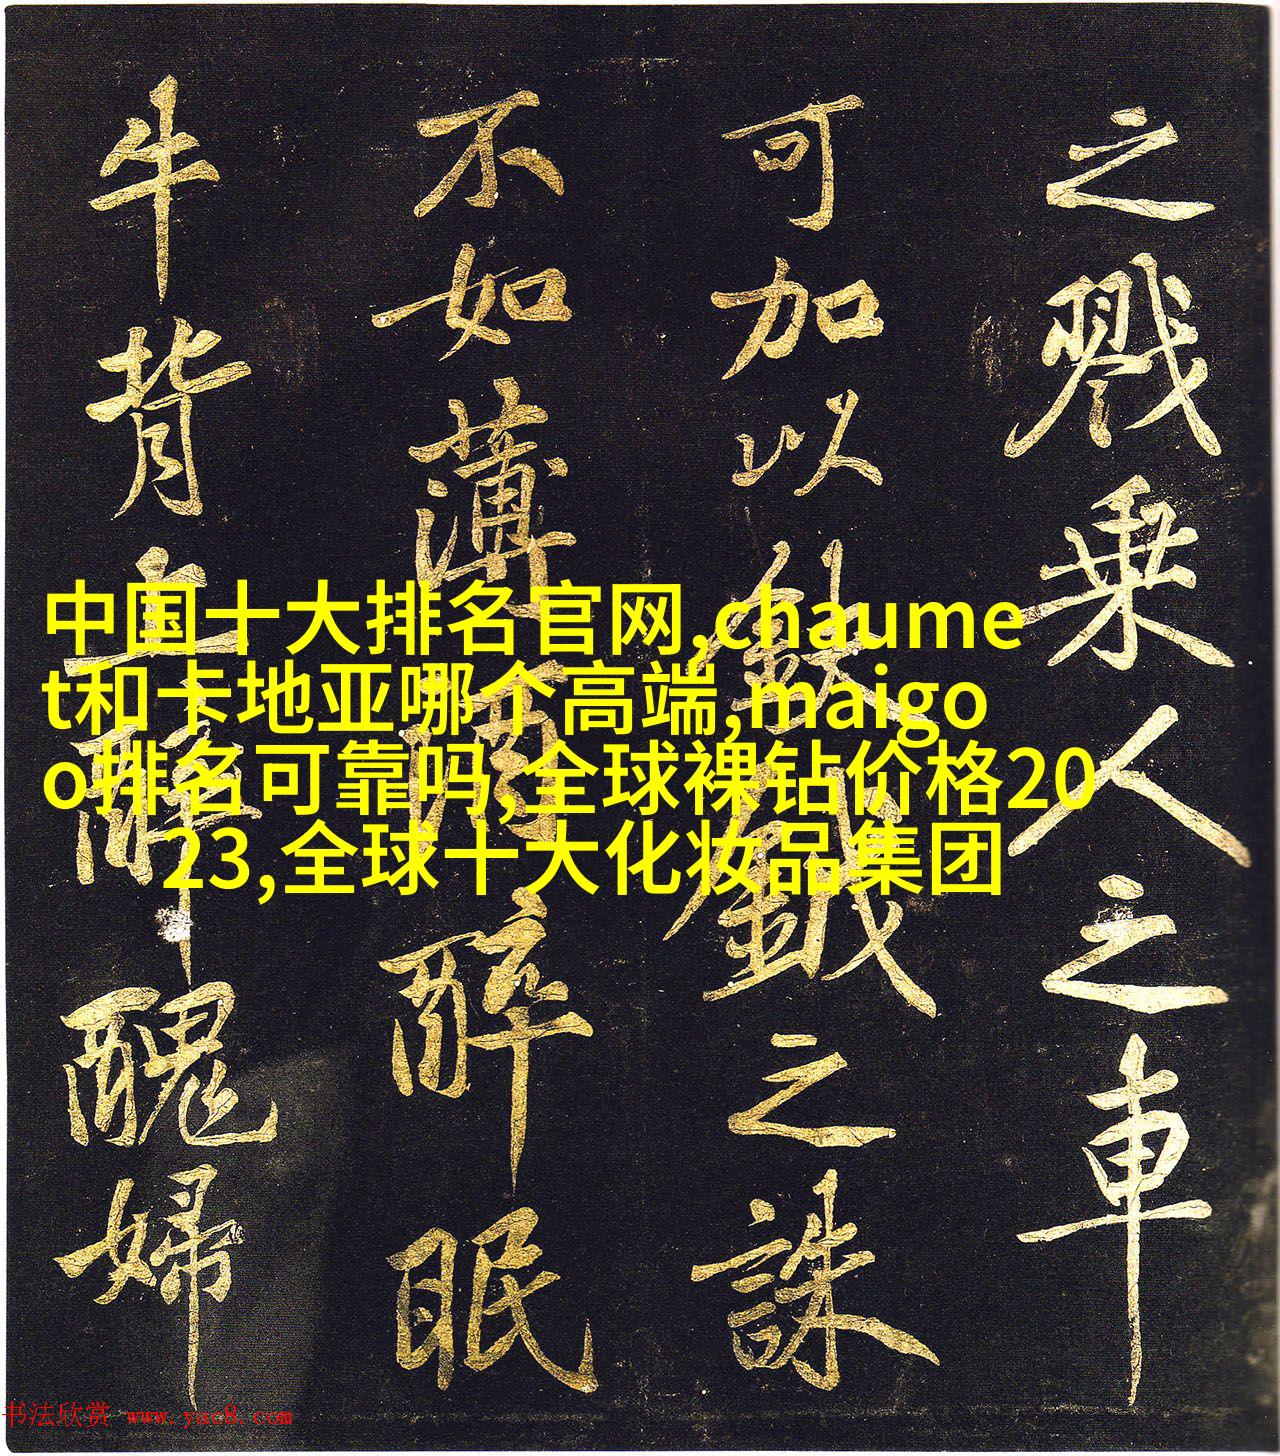 之戮乘人之車
可加以鈇鉞之誅
不如薄酒醉眠
牛背上醉
醜婦
中国十大排名官网,chaume
t和卡地亚哪个高端,maigo
o排名可靠吗,全球裸钻价格20
23,全球十大化妆品集团
书法欣赏 www.yac8.com